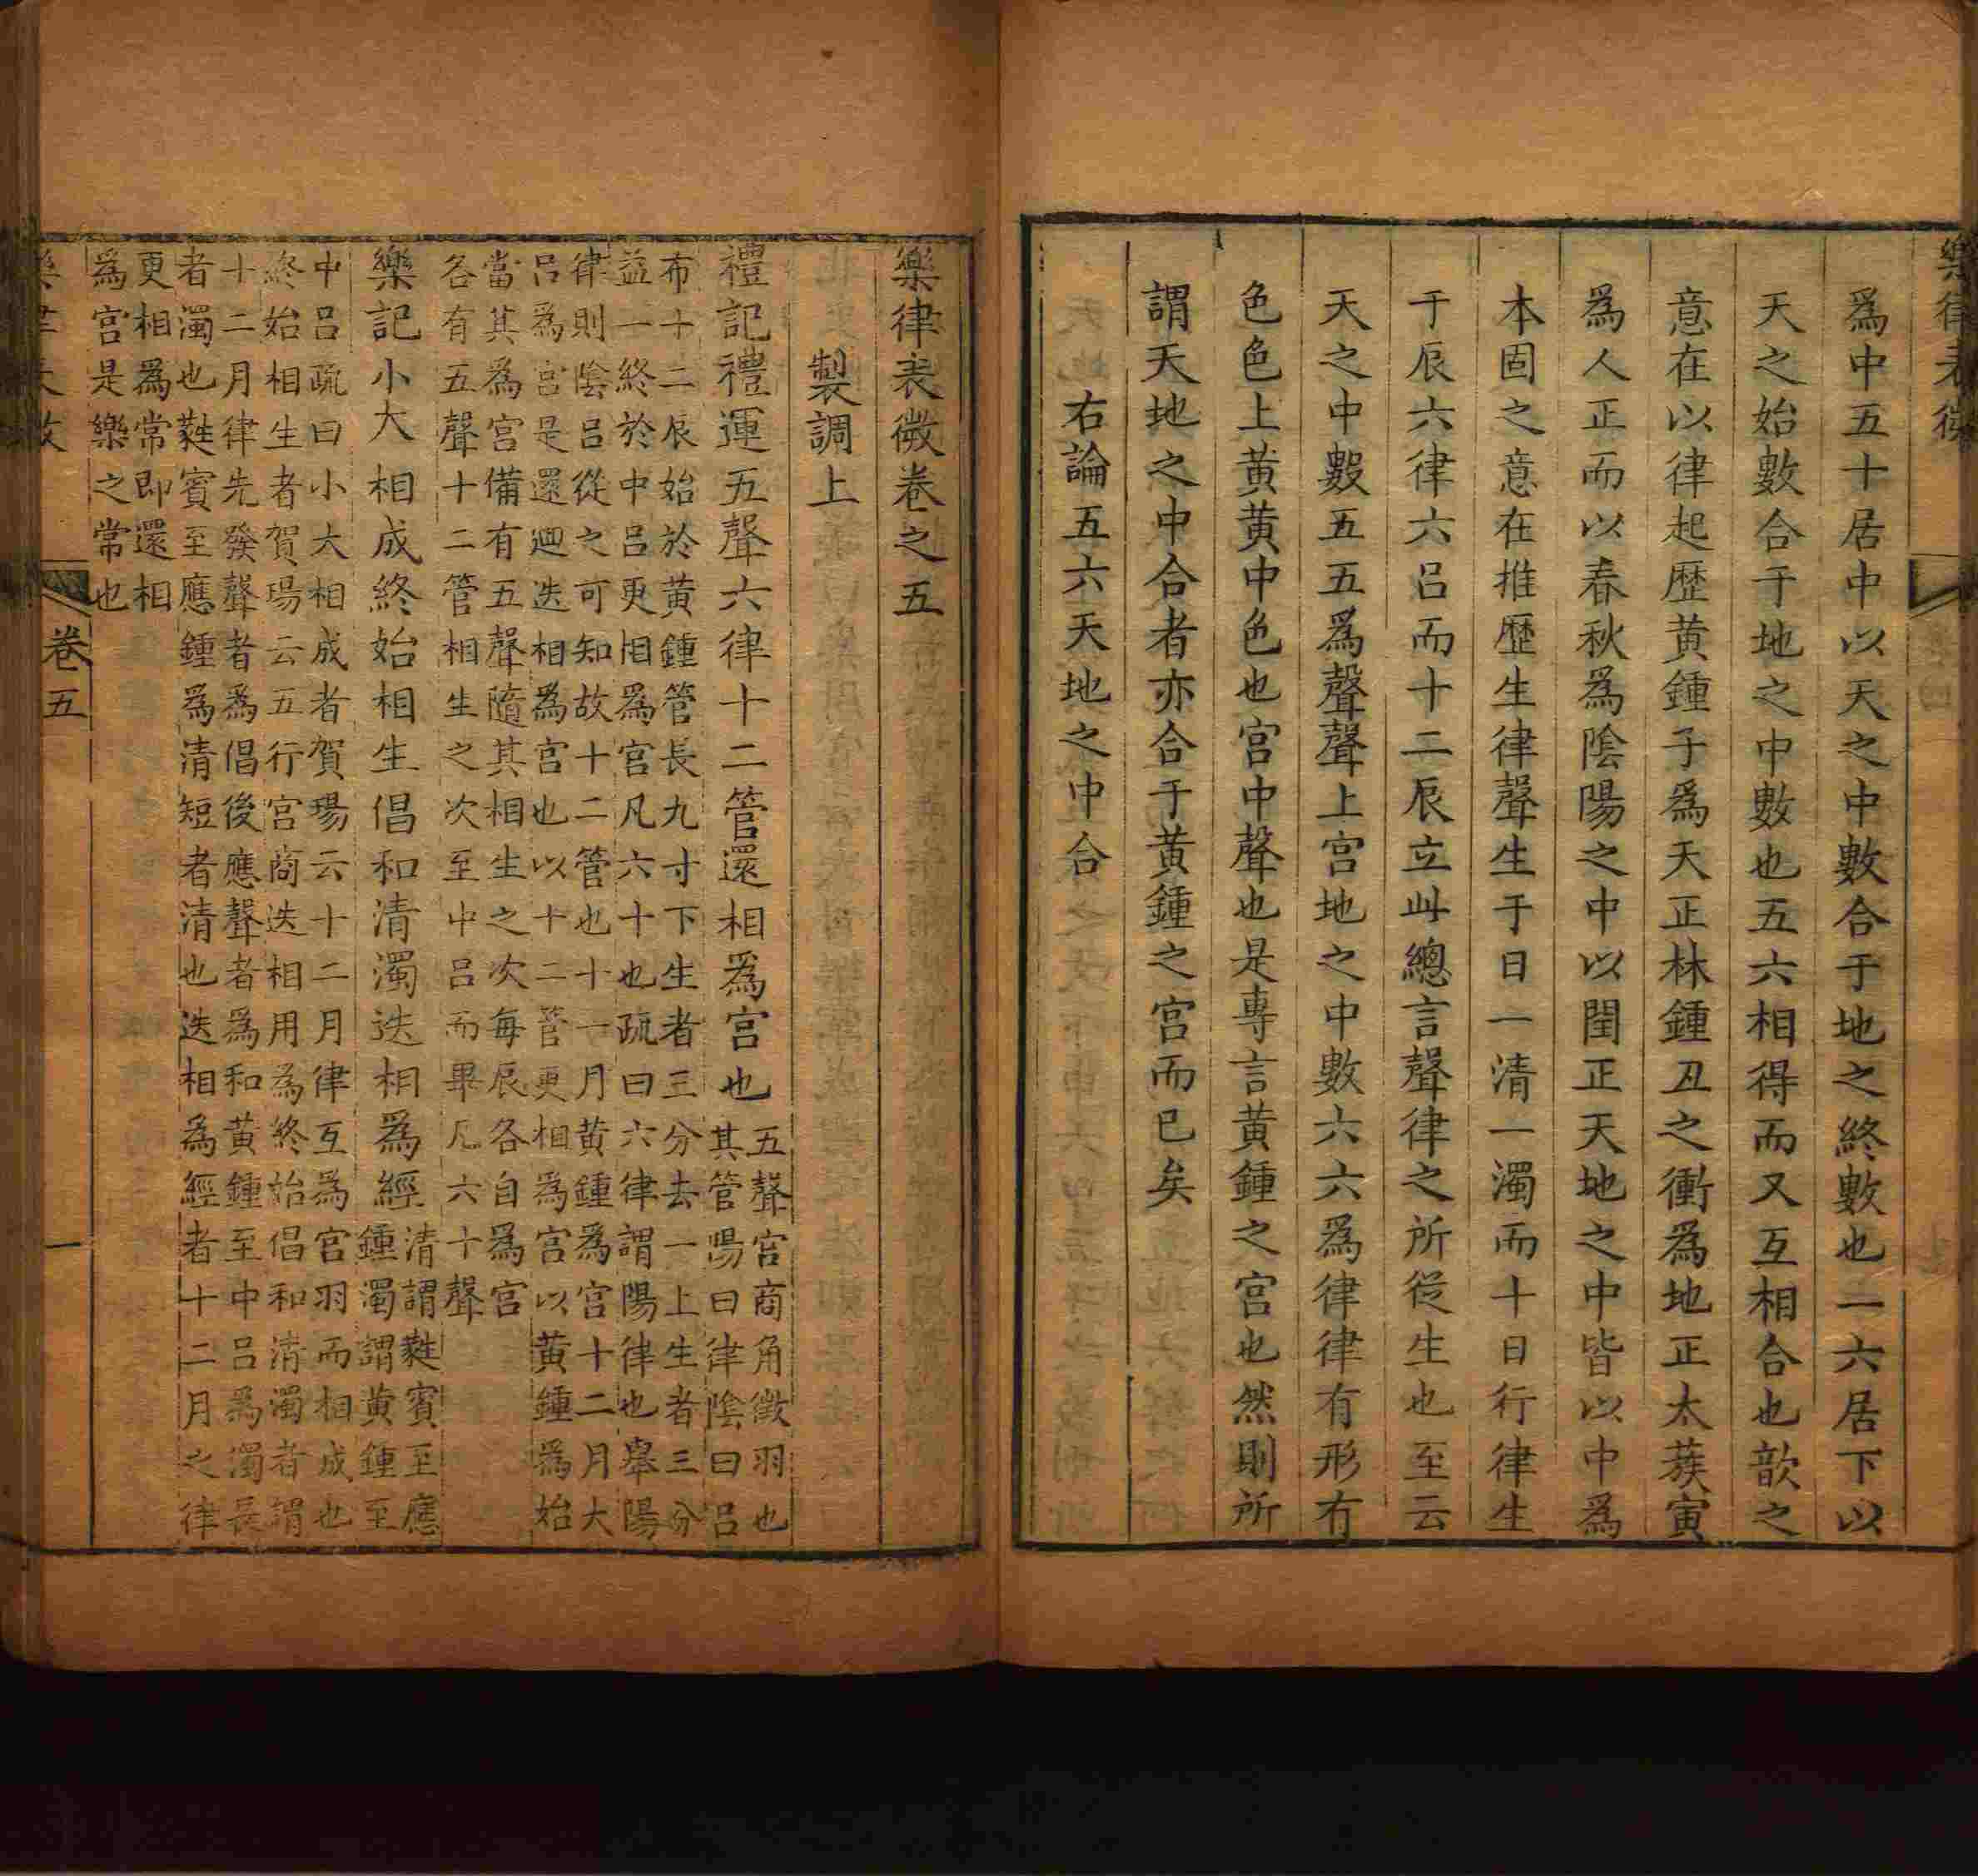 樂律表微
爲中五十居中以天之中數合于地之終數也一六居下以
天之始數合于地之中數也五六相得而又互相合也歆之
意在以律起歷黄鍾子爲天正林鍾丑之衝爲地正太蔟寅
爲人正而以春秋爲陰陽之中以閏正天地之中皆以中爲
本固之意在推歷生律聲生于日一清一濁而十日行律生
于辰六律六呂而十二辰立此總言聲律之所從生也至云
天之中數五五爲聲聲上宫地之中數六六爲律律有形有
色色上黄黄中色也宫中聲也是專言黄鍾之宫也然則所
謂天地之中合者亦合于黄鍾之宫而已矣
右論五六天地之中合
樂律表微卷之五
製調上
禮記禮運五聲六律十二管還相爲宫也
五聲宫商角徵羽也
其管陽曰律陰曰呂
布十二辰始於黄鍾管長九寸下生者三分去一上生者三分
益一終於中呂更相爲宫凡六十也疏曰六律謂陽律也舉陽
律則陰呂從之可知故十二管也十一月黄鍾爲宫十二月大
呂爲宫是還迴迭相爲宫也以十二管更相爲宫以黄鍾爲始
當其爲宫備有五聲隨其相生之次每辰各自爲宫
各有五聲十二管相生之次至中呂而畢凡六十聲
樂記小大相成終始相生倡和清濁迭相爲經
清謂蕤賓至應
鍾濁謂黄鍾至
中呂疏曰小大相成者賀瑒云十二月律互爲宫羽而相成也
終始相生者賀瑒云五行宫商迭相用爲終始倡和清濁者謂
十二月律先發聲者爲倡後應聲者爲和黄鍾至中呂爲濁長
者濁也蕤賓至應鍾爲清短者清也迭相爲經者十二月之律
更相爲常即還相
爲宫是樂之常也
卷五
一